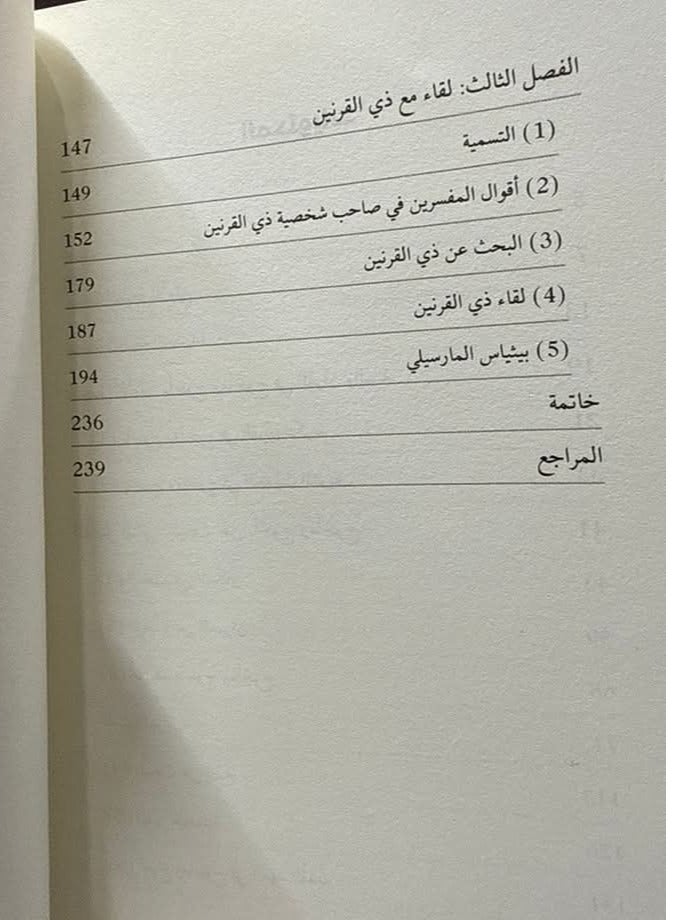 الفصل الثالث: لقاء مع ذي القرنين 147
(1) التسمية 149
(2) أقوال المفسرين في صاحب شخصية ذي القرنين 152
(3) البحث عن ذي القرنين 179
(4) لقاء ذي القرنين 187
(5) بيثياس المارسيلي 194
خاتمة 236
المراجع 239